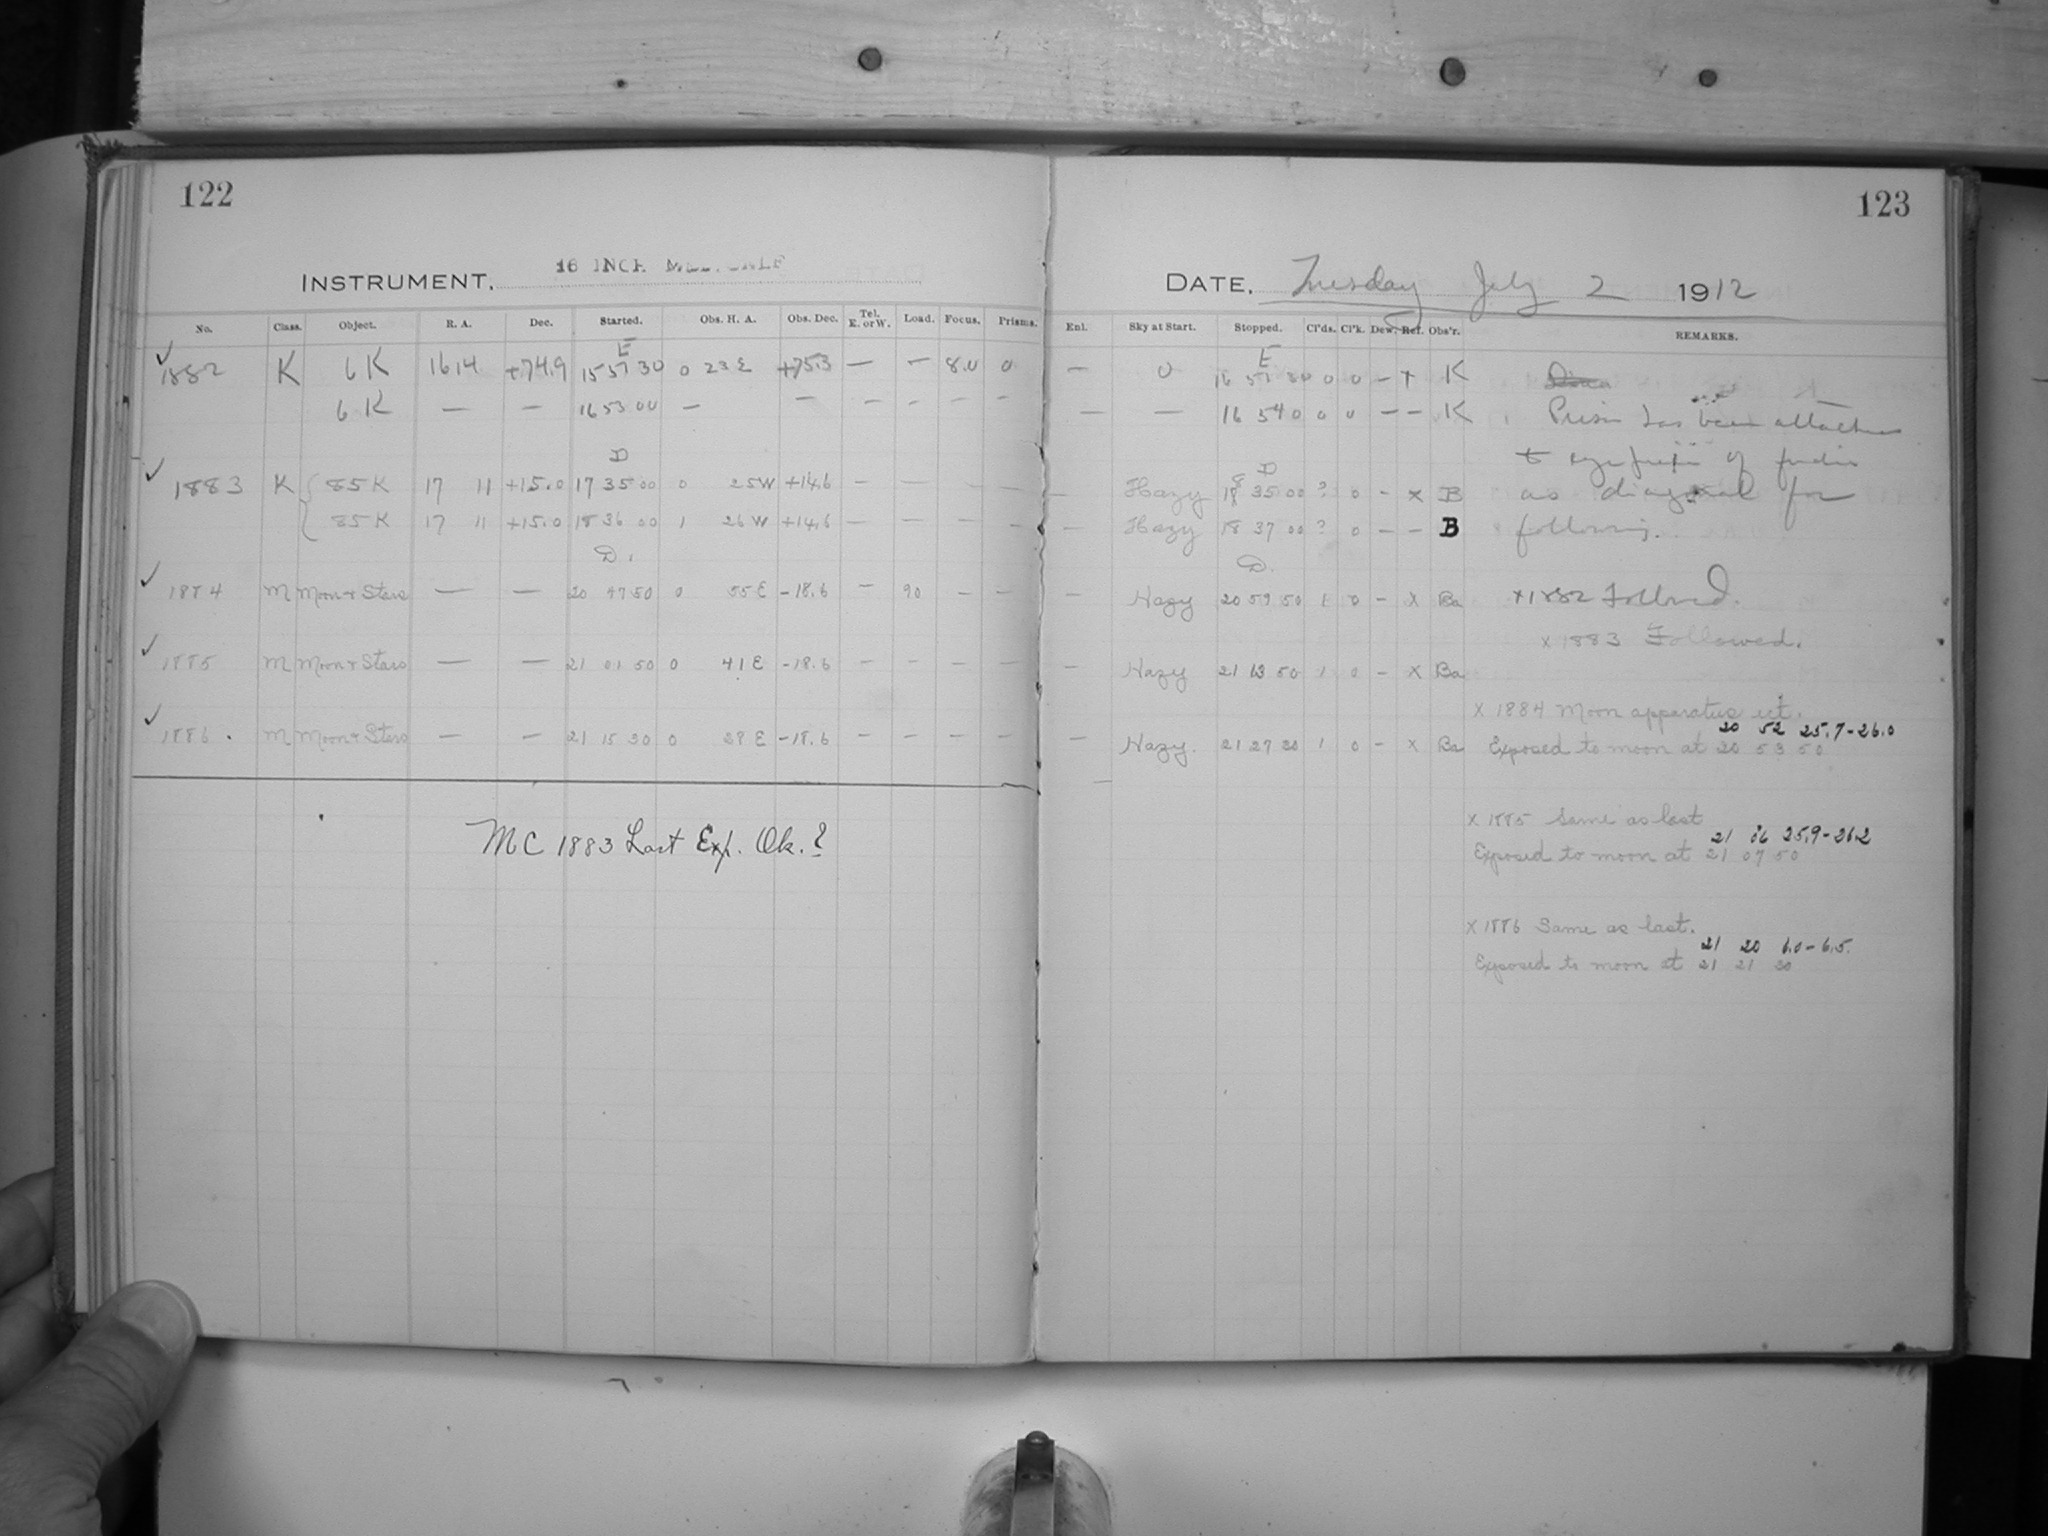 122
123
INSTRUMENT. 16 INCH METCALF
DATE. Tuesday July 2 1912
No. Class. Object. R. A. Dec. Started. Obs. H. A. Obs. Dec. Tel. E. or W. Load. Focus. Prisms. Enl. Sky at Start. Stopped. Cl'ds. Cl'k. Dew. Ref. Obs'r. REMARKS.
E E
✓ 1882 K 6 K 16 14 +74.9 15 57 30 0 23 E +75.3 — — 8.0 0 — 0 16 51 30 0 0 — + K
6 K — — 16 53 00 — — — — — — — — 16 54 0 0 0 — — K Prism has been attached
D D to eye of
✓ 1883 K { 85 K 17 11 +15.0 17 35 00 0 25 W +14.6 — — — — — Hazy 18 35 00 ? 0 — x B as diagonal for
85 K 17 11 +15.0 18 36 00 1 26 W +14.6 — — — — — Hazy 18 37 00 ? 0 — — B following.
D. D.
✓ 1884 M Moon & Stars — — 20 47 50 0 55 E -18.6 — 90 — — — Hazy 20 59 50 1 0 — x Ba x 1882 Followed.
x 1883 Followed.
✓ 1885 M Moon & Stars — — 21 01 50 0 41 E -18.6 — — — — — Hazy 21 13 50 1 0 — x Ba
x 1884 Moon apparatus
20 52 25.7-26.0
✓ 1886. M Moon & Stars — — 21 15 20 0 28 E -18.6 — — — — — Hazy. 21 27 20 1 0 — x Ba Exposed to moon at 20 53 50
x 1885 Same as last
21 06 25.9-26.2
MC 1883 Last Exp. Ok.? Exposed to moon at 21 07 50
x 1886 Same as last.
21 20 6.0-6.5.
Exposed to moon at 21 21 20